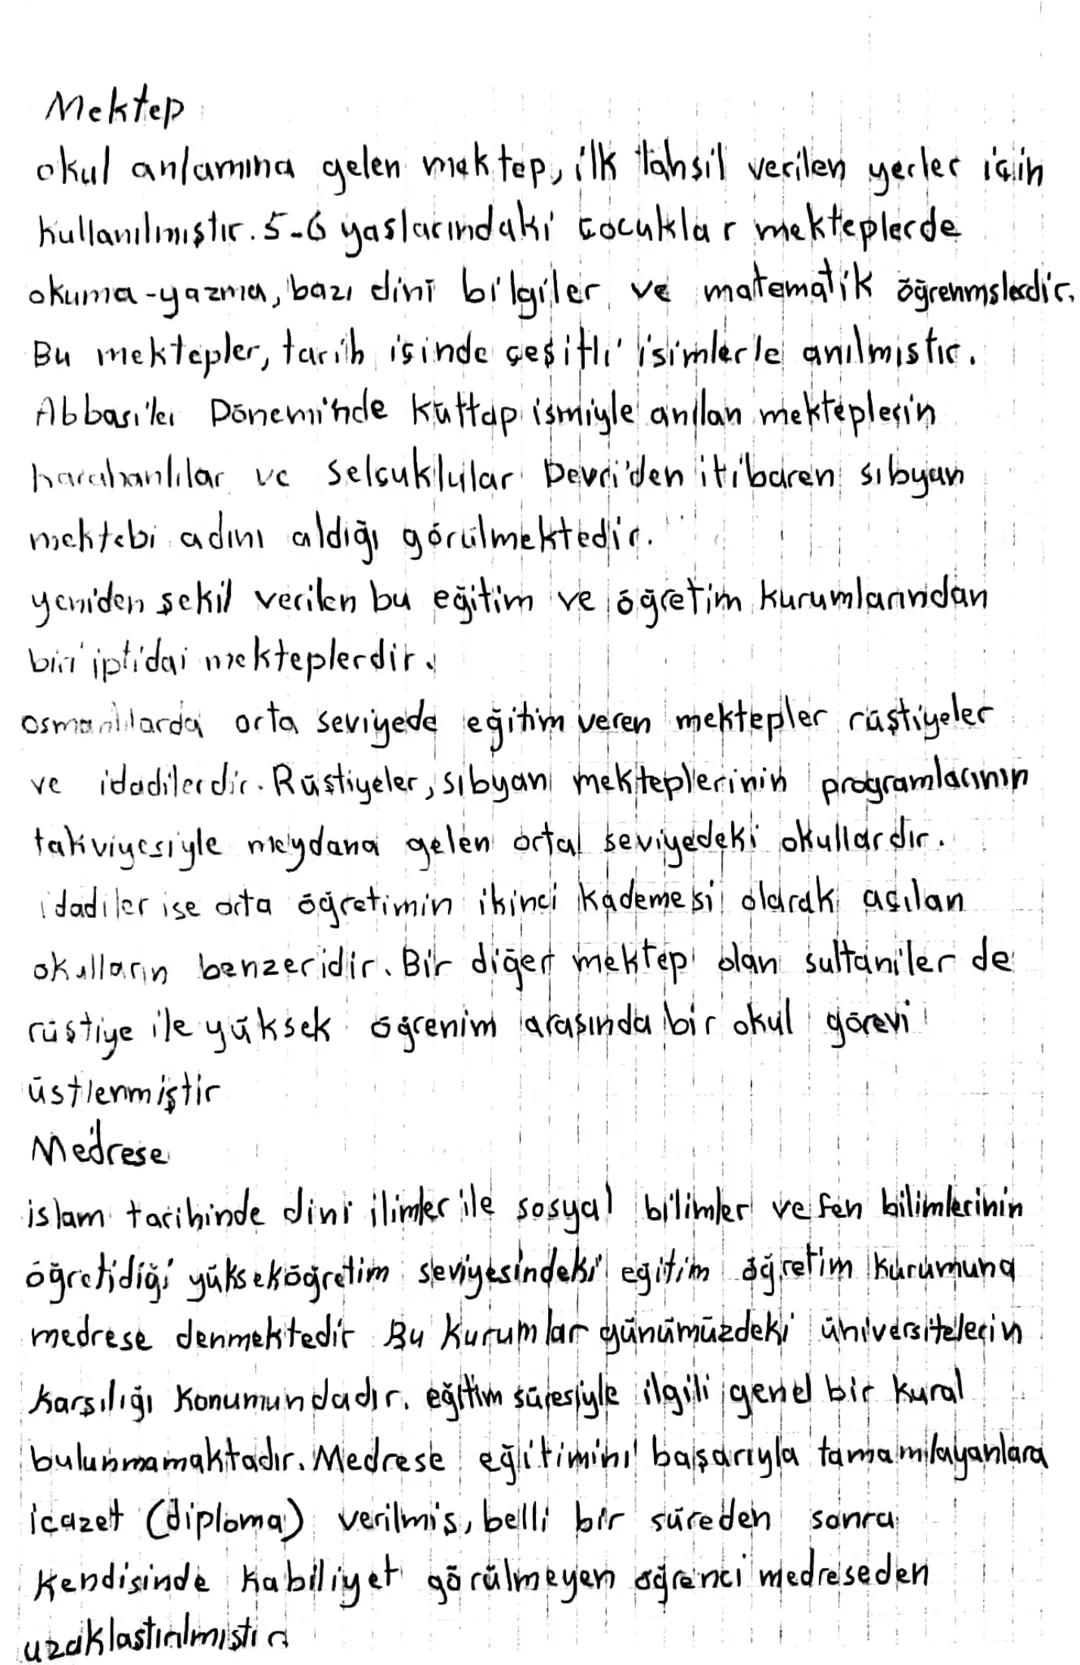 Mektep
okul anlamına gelen mektep, ilk tahsil verilen yerler için
kullanılmıştır. 5-6 yaslarındaki çocuklar mekteplerde
okuma-yazma, bazı dini bilgiler ve matematik öğrenmslerdir.
Bu mektepler, tarih içinde çeşitli isimlerle anılmıstır.
Abbasiler Dönemi'nde küttap ismiyle anılan mekteplerin
harahanlılar ve Selçuklular Devri'den itibaren sıbyan
mektebi adını aldığı görülmektedir.
yeniden şekil verilen bu eğitim ve öğretim kurumlarından
biri iptidai mekteplerdir.
osmanlılarda orta seviyede eğitim veren mektepler rüştiyeler
ve idadilerdir. Rüştiyeler, sıbyan mekteplerinin programlarının
takviyesiyle meydana gelen orta seviyedeki okullardır.
idadiler ise orta öğretimin ikinci kademesi olarak açılan
okulların benzeridir. Bir diğer mektep olan sultaniler de
rüştiye ile yüksek öğrenim arasında bir okul görevi
üstlenmiştir
Medrese
islam tarihinde dini ilimler ile sosyal bilimler ve fen bilimlerinin
öğretidiği yükseköğretim seviyesindeki egitim öğretim kurumuna
medrese denmektedir Bu kurumlar günümüzdeki üniversitelerin
karşılığı konumundadır. eğitim süresiyle ilgili genel bir kural
bulunmamaktadır. Medrese eğitimini başarıyla tamamlayanlara
icazet (diploma) verilmis, belli bir süreden sonra
kendisinde kabiliyet görülmeyen öğrenci medreseden
uzaklastırılmıştır